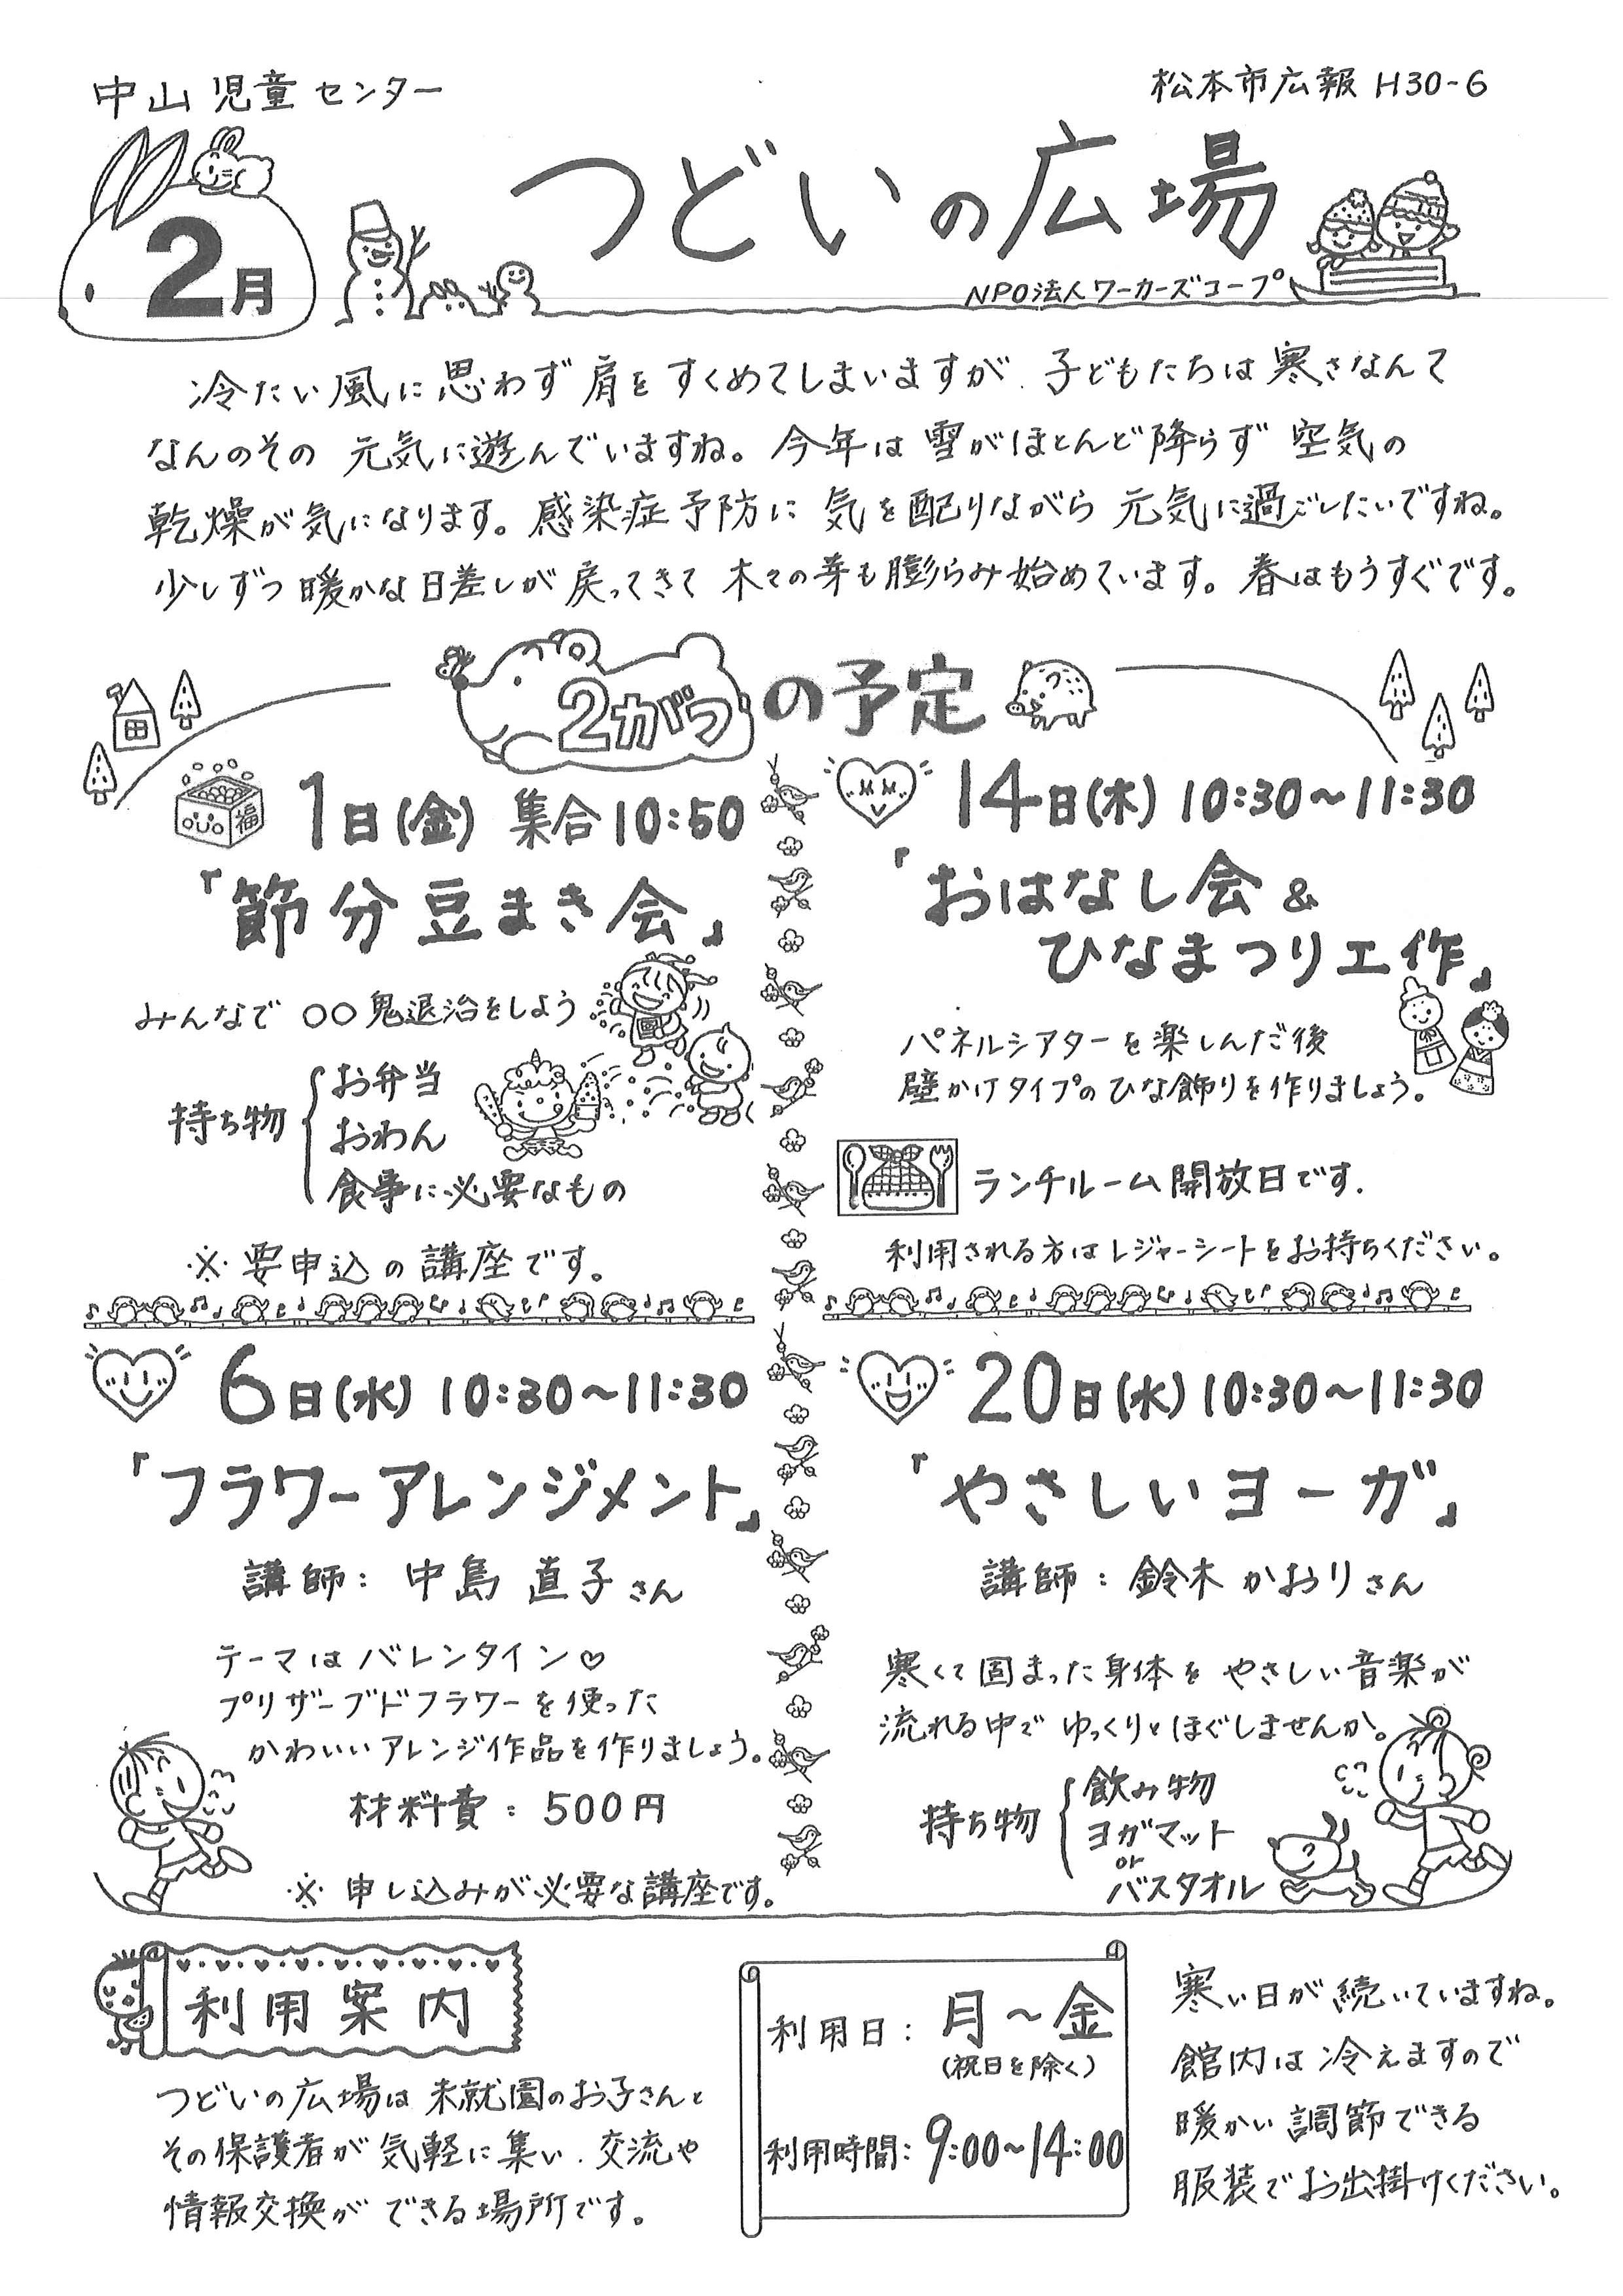 中山児童センター
松本市広報 H30-6
2月
つどいの広場
NPO法人ワーカーズコープ
冷たい風に思わず肩をすくめてしまいますが、子どもたちは寒さなんて
なんのその 元気に遊んでいますね。今年は雪がほとんど降らず 空気の
乾燥が気になります。感染症予防に 気を配りながら 元気に過ごしたいですね。
少しずつ暖かな日差しが戻ってきて 木々の芽も膨らみ始めています。春はもうすぐです。
2がつの予定
福
1日(金) 集合10:50
「節分豆まき会」
みんなで ○○鬼退治をしよう
持ち物
お弁当
おわん
食事に必要なもの
※要申込の講座です。
14日(木) 10:30~11:30
「おはなし会&
ひなまつり工作」
パネルシアターを楽しんだ後
壁かけタイプのひな飾りを作りましょう。
ランチルーム開放日です.
利用される方はレジャーシートをお持ちください。
6日(水) 10:30~11:30
「フラワーアレンジメント」
講師: 中島 直子さん
テーマはバレンタイン♡
プリザーブドフラワーを使った
かわいいアレンジ作品を作りましょう。
材料費: 500円
※ 申し込みが必要な講座です。
20日(水) 10:30~11:30
「やさしいヨーガ」
講師: 鈴木かおりさん
寒くて固まった身体を やさしい音楽が
流れる中で ゆっくりとほぐしませんか。
持ち物
飲み物
ヨガマット
or
バスタオル
利用案内
つどいの広場は未就園のお子さんと
その保護者が気軽に集い、交流や
情報交換ができる場所です。
利用日: 月~金
(祝日を除く)
利用時間: 9:00~14:00
寒い日が続いていますね。
館内は冷えますので
暖かい調節できる
服装でお出掛けください。